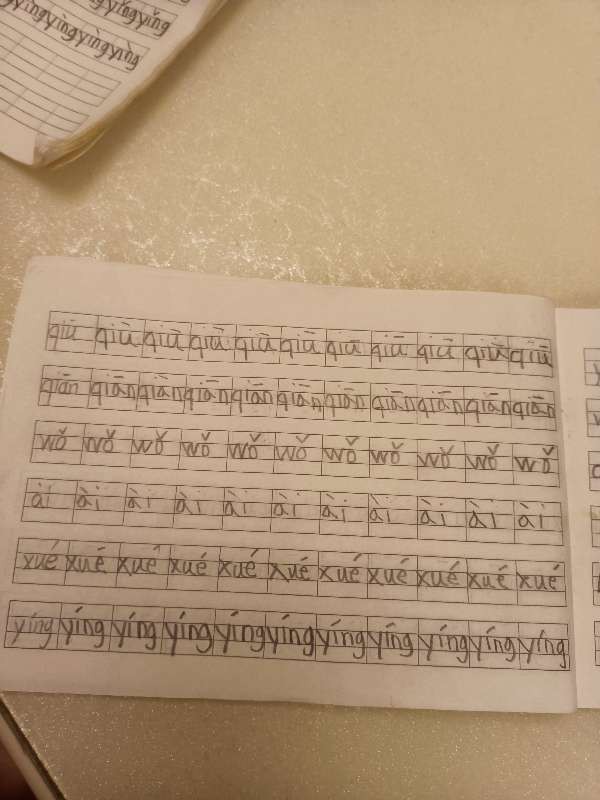 yīngyǐng
yīngyīngyìngyìngyìng
qiū qiū qiū qiū qiū qiū qiū qiū qiū qiū qiū
qiān qiān qiān qiān qiān qiān qiān qiān qiān qiān qiān
wǒ wǒ wǒ wǒ wǒ wǒ wǒ wǒ wǒ wǒ wǒ
ài ài ài ài ài ài ài ài ài ài ài
xué xué xué xué xué xué xué xué xué xué xué
yíng yíng yíng yíng yíng yíng yíng yíng yíng yíng yíng